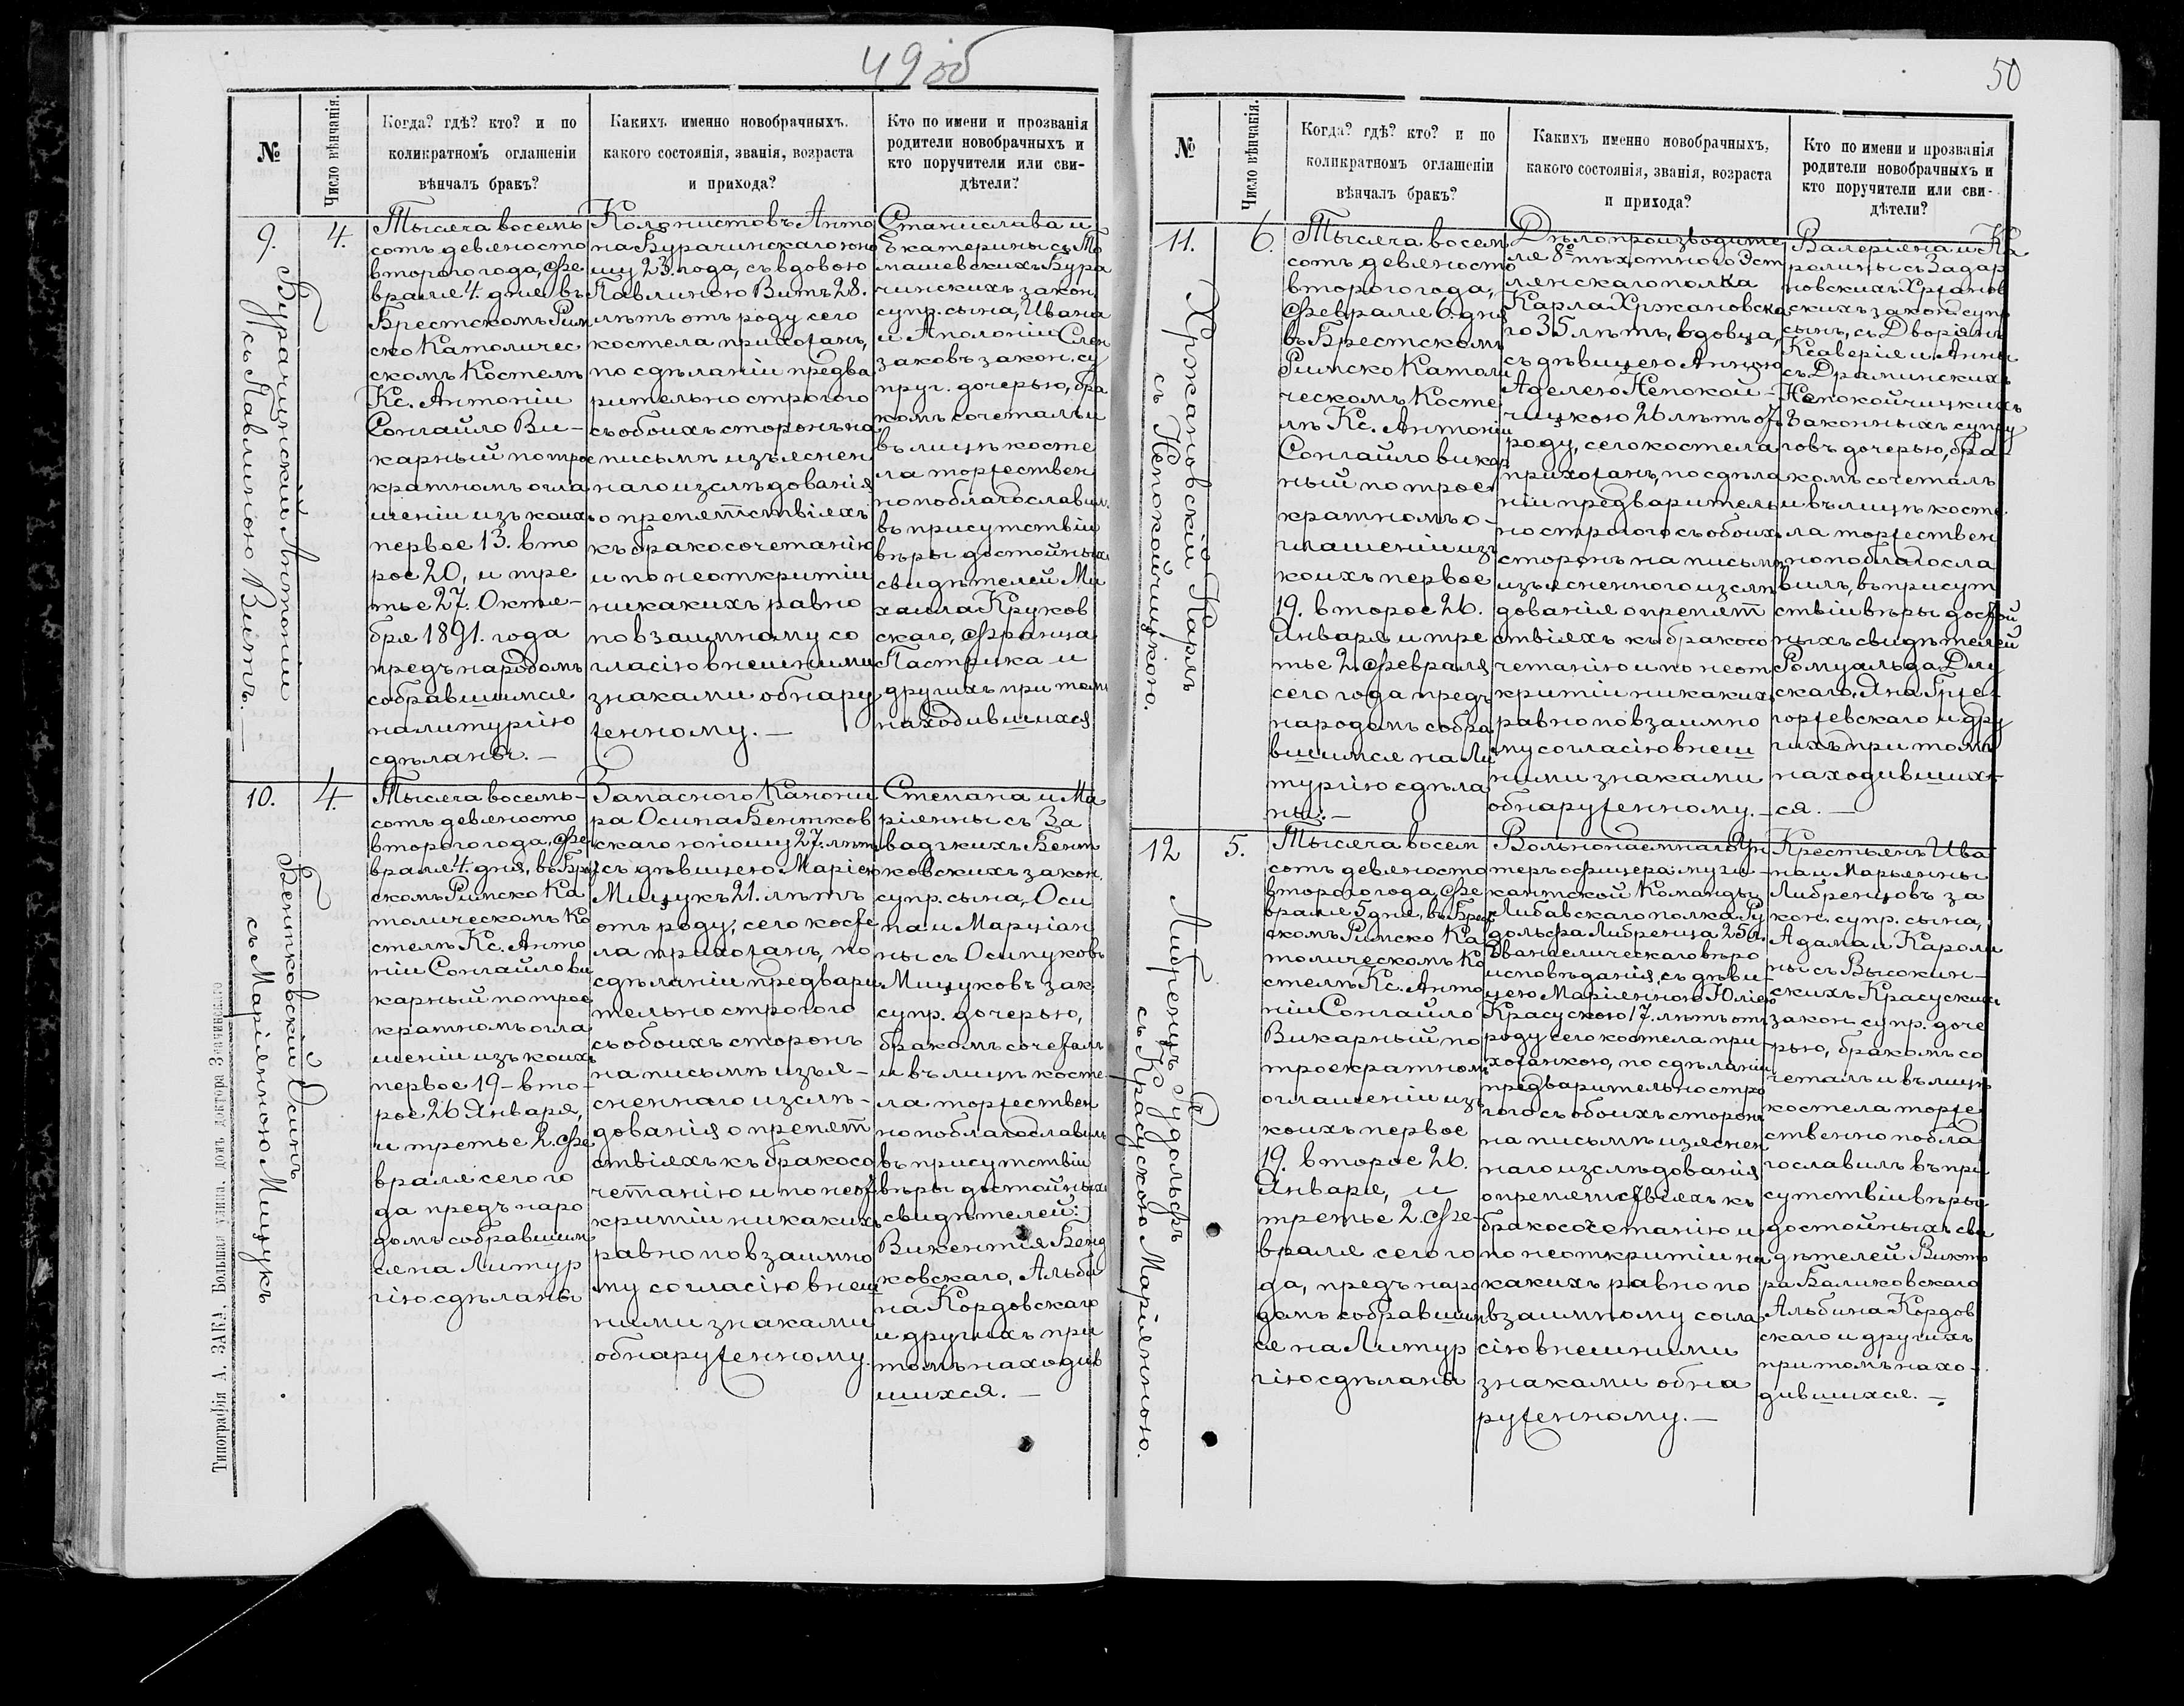 49об
№
Число вѣнчанія.
Когда? гдѣ? кто? и по
коликратномъ оглашеніи
вѣнчалъ бракъ?
Какихъ именно новобрачныхъ.
какого состоянія, званія, возраста
и прихода?
Кто по имени и прозванія
родители новобрачныхъ и
кто поручители или сви-
дѣтели?
9.
4.
Бурачинскій Антоній
съ Павлиною Витъ.
Тысяча восемь
сотъ девяносто
второго года, Фе
враля 4. дня въ
Брестскомъ Рим
ско Католичес
скомъ Костелѣ
Кс. Антоній
Сонгайло Ви-
карный по трое
кратномъ огла
шеніи изъ коихъ
первое 13. вто
рое 20, и тре
тье 27. Октя-
бря 1891. года
предъ народомъ
собравшимся
на литургію
сдѣланы.—
Колонистовъ Анто
на Бурачинскаго юно
шу 23. года, съ вдовою
Павлиною Витъ 28.
лѣтъ отъ роду сего
костела прихожанъ,
по сдѣланіи предва
рительно строгого
съ обоихъ сторонъ на
письмѣ изъяснен
наго изслѣдованія
о препятствіяхъ
къ бракосочетанію
и по неоткритіи
никакихъ равно
по взаимному со
гласію внешними
знаками обнару
женному.—
Станислава и
Екатерины съ То
машевскихъ Бура
чинскихъ закон.
супр. сына, Ивана
и Аполоніи
заковъ закон. су
пруг. дочерью, бра
комъ сочеталъ и
въ лицѣ косте
ла торжествен
но поблагославил.
въ присутствіи
вѣры достойныхъ
свидѣтелей Ми
хаила Круков
скаго, Франца
Пастрика и
другихъ при томъ
находившихся
10.
4.
Бентковскій Осипъ
съ Маріянною Мицукъ
Тысяча восемь-
сотъ девяносто
второго года, Фе-
враля 4. дня, въ Брест
скомъ Римско Ка
толическомъ Ко
стелѣ Кс. Анто
ній Сонгайло ви
карный по трое
кратномъ огла
шеніи изъ коихъ
первое 19-вто-
рое 26 Января,
и третье 2. Фе
враля сего го
да предъ наро
домъ собравшим
ся на Литур
гію сдѣланы
Запасного Канони
ра Осипа Бентков
скаго юношу 27. лѣтъ
съ дѣвицею Маріею
Мицукъ 21. лѣтъ
отъ роду, сего косте
ла прихожанъ, по
сдѣланіи предвари
тельно строгого
съ обоихъ сторонъ
на письмѣ изъя-
сненнаго изслѣ-
дованія о препят
ствіяхъ къ бракосо
четанію и по неот
критіи никакихъ
равно по взаимно
му согласію внеш
ними знаками
обнаруженному.
Степана и Ма
ріянны съ За
вадзкихъ Бент
ковскихъ закон.
супр. сына, Оси
па и Марціан
ны съ Осипуковъ
Мицуковъ зак.
супр. дочерью,
бракомъ сочеталъ
и въ лицѣ косте
ла торжествен
но поблагославилъ
въ присутствіи
вѣры достойныхъ
свидѣтелей:
Викентія Бент
ковскаго, Альби
на Кордовскаго
и другихъ при
томъ находив
шихся.—
Типографія А. ЗАКА, Большая улица, домъ доктора Значинскаго
50
№
Число вѣнчанія.
Когда? гдѣ? кто? и по
коликратномъ оглашеніи
вѣнчалъ бракъ?
Какихъ именно новобрачныхъ,
какого состоянія, званія, возраста
и прихода?
Кто по имени и прозванія
родители новобрачныхъ и
кто поручители или сви-
дѣтели?
11.
6.
Хржановскій Карлъ
съ Непокойчицкою.
Тысяча восемь
сотъ девяносто
второго года,
Февраля 6. дня
въ Брестскомъ
Римско Католи
ческомъ Косте
лѣ Кс. Антоній
Сонгайло викар
ный по трое
кратномъ о-
глашеніи изъ
коихъ первое
19. второе 26.
Января и тре
тье 2. Февраля
сего года предъ
народомъ собра
вшимся на Ли
тургію сдѣла
ны.—
Дѣлопроизводите
ля 8º пѣхотного Эст
лянскаго полка
Карла Хржановска
го 35 лѣтъ, вдовца,
съ дѣвицею Анною
Аделею Непокой-
чицкою 26 лѣтъ отъ
роду, сего костела
прихожанъ, по сдѣла
ніи предварительно
но строгого съ обоихъ
сторонъ на письмѣ
изъясненного изслѣ
дованія о препят
ствіяхъ къ бракосо
четанію и по неот
критіи никакихъ
равно по взаимно
му согласію внеш
ними знаками
обнаруженному.—
Валеріяна и Ка
ролины съ Задар
новскихъ Хржанов
скихъ закон. супр.
сынъ, съ Дворянъ
Ксаверія и Анны
съ Драминскихъ
Непокойчицкихъ
Законныхъ супру
говъ дочерью, бра
комъ сочеталъ
и въ лицѣ косте
ла торжествен
но поблагосла
вилъ, въ присут
ствіи вѣры достой
ныхъ свидѣтелей
Ромуальда Длу
скаго, Яна Грже-
горжевскаго и дру
гихъ при томъ
находивших-
ся.—
12
5.
Либренцъ Рудольфъ
съ Красускою Маріянною.
Тысяча восем
сотъ девяносто
второго года, Фе
враля 5 дня, въ Брест
скомъ Римско Ка
толическомъ Ко
стелѣ Кс. Анто
ній Сонгайло
Викарный по
троекратномъ
оглашеніи изъ
коихъ первое
19. второе 26.
Января, и
третье 2. Фе-
враля сего го
да, предъ наро
домъ собравшим
ся на Литур
гію сдѣланы
Вольнонаемнаго Ун
теръ офицера музи-
кантской Команды
Либавскаго полка Ру
дольфа Либренца 25 л.
Евангелическаго вѣро
исповѣданія, съ дѣви-
цею Маріянною Юліею
Красускою 17. лѣтъ отъ
роду сего костела при
хожанкою, по сдѣланіи
предварительно стро
гого съ обоихъ сторонъ
на письмѣ изяснен
наго изслѣдованія
о препятствіяхъ къ
бракосочетанію и
по неоткритіи ни
какихъ равно по
взаимному согла
сію внешними
знаками обна
руженному.—
Крестьянъ Ива
на и Марьянны
Либренцовъ за
кон. супр. сына,
Адама и Кароли
ны съ Высокин-
скихъ Красускихъ
закон. супр. доче
рью, бракомъ со
четалъ и въ лицѣ
костела торже
ственно побла
гославилъ въ при
сутствіи вѣры
достойныхъ сви
дѣтелей Викто
ра Баликовскаго
Альбина Кордов
скаго и другихъ
при томъ нахо-
дившихся.—